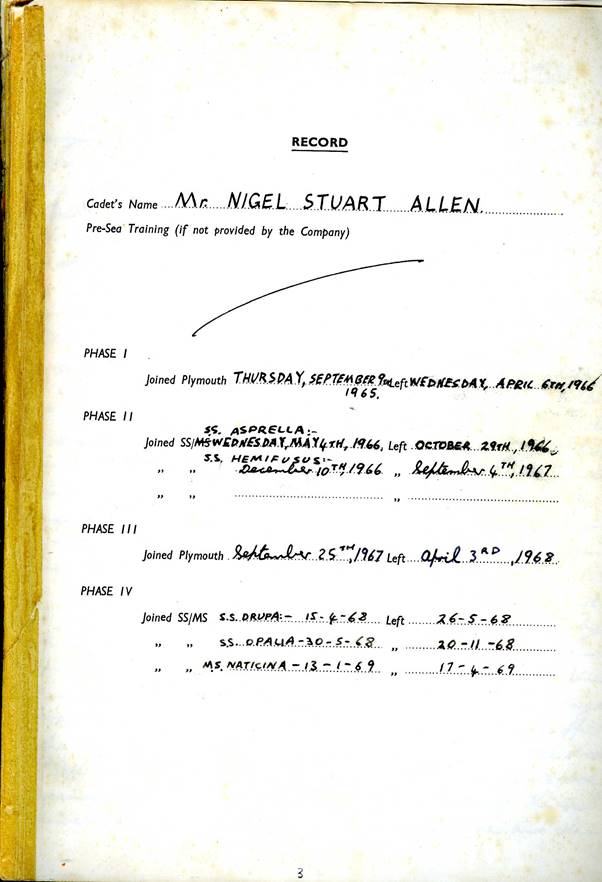 RECORD
Cadet's Name Mr. NIGEL STUART ALLEN.
Pre-Sea Training (if not provided by the Company)
PHASE I
Joined Plymouth THURSDAY, SEPTEMBER 9TH Left WEDNESDAY, APRIL 6TH, 1966
1965.
PHASE II
SS. ASPRELLA:-
Joined SS/MS WEDNESDAY, MAY 4TH, 1966, Left OCTOBER 29TH, 1966.
S.S. HEMIFUSUS:-
„ „ December 10TH, 1966 „ September 4TH, 1967
„ „ „
PHASE III
Joined Plymouth September 25TH, 1967 Left April 3RD, 1968
PHASE IV
Joined SS/MS S.S. DRUPA:- 15-4-68 Left 26-5-68
„ „ SS. OPALIA-30-5-68 „ 20-11-68
„ „ M.S. NATICINA-13-1-69 „ 17-4-69
3